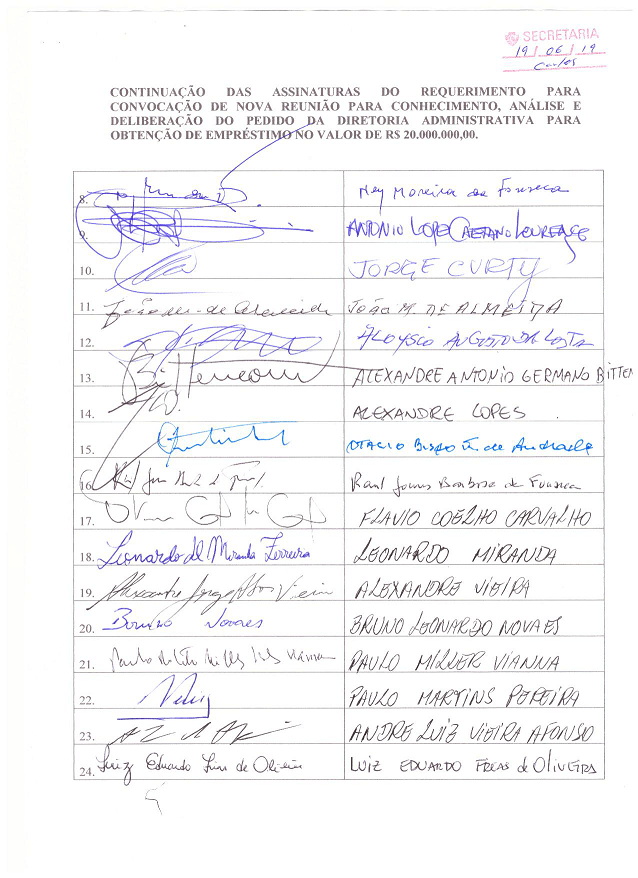 SECRETARIA
19/06/19
Carlos
CONTINUAÇÃO DAS ASSINATURAS DO REQUERIMENTO PARA
CONVOCAÇÃO DE NOVA REUNIÃO PARA CONHECIMENTO, ANÁLISE E
DELIBERAÇÃO DO PEDIDO DA DIRETORIA ADMINISTRATIVA PARA
OBTENÇÃO DE EMPRÉSTIMO NO VALOR DE R$ 20.000.000,00.
8. Ney Moreira da Fonseca
9. ANTONIO LOPES CAETANO LOURENÇO
10. JORGE CURTY
11. João M. de Almeida JOÃO M. DE ALMEIDA
12. ALOYSIO AUGUSTO DA COSTA
13. ALEXANDRE ANTONIO GERMANO BITTEN
14. ALEXANDRE LOPES.
15. OTACIO de Andrade
16. Raul Barbosa da Fonseca
17. FLAVIO COELHO CARVALHO
18. Leonardo de Miranda Ferreira LEONARDO MIRANDA
19. Alexandre Jorge Vieira ALEXANDRE VIEIRA
20. Bruno Novaes BRUNO LEONARDO NOVAES
21. Paulo PAULO MILLER VIANNA
22. PAULO MARTINS PEREIRA
23. ANDRE LUIZ VIEIRA AFONSO
24. Luiz Eduardo de Oliveira LUIZ EDUARDO de OLIVEIRA